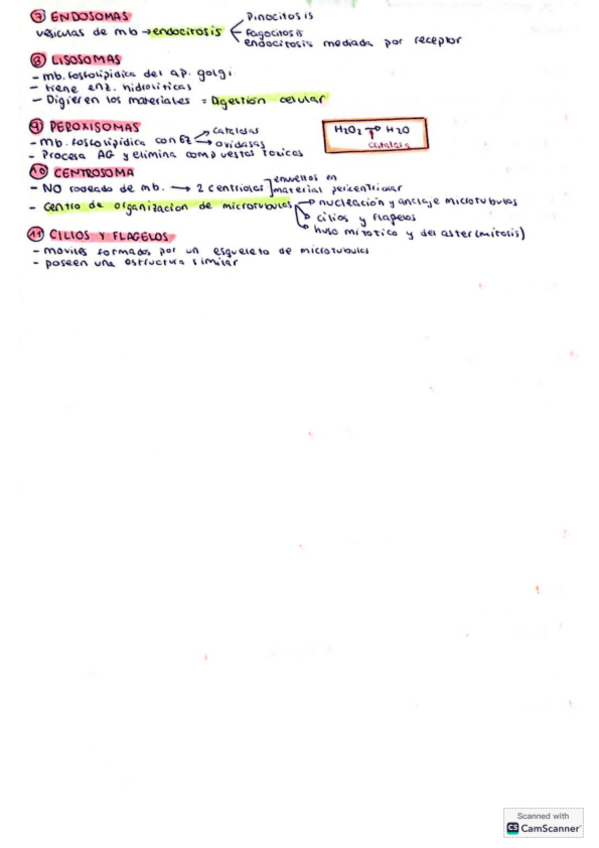 ⑦ ENDOSOMAS
vesículas de mb → endocitosis < Pinocitosis
Fagocitosis
endocitosis mediada por receptor
⑧ LISOSOMAS
- mb. fosfolipidica del ap. golgi
- tiene enz. hidrolíticas
- Digieren los materiales = Digestión celular
⑨ PEROXISOMAS
- mb. fosfolipídica con Ez → catalasas
→ oxidasas
- Procesa AG y elimina compuestos toxicos
H2O2 → H2O
catalasa
⑩ CENTROSOMA
- NO rodeado de mb. → 2 centriolos ] envueltos en
material pericentriolar
- Centro de organización de microtubulos → nucleación y anclaje microtubulos
→ cilios y flagelos
→ huso mitotico y del aster (mitosis)
⑪ CILIOS Y FLAGELOS
- moviles formados por un esqueleto de microtubulos
- poseen una estructura similar
Scanned with
CS CamScanner